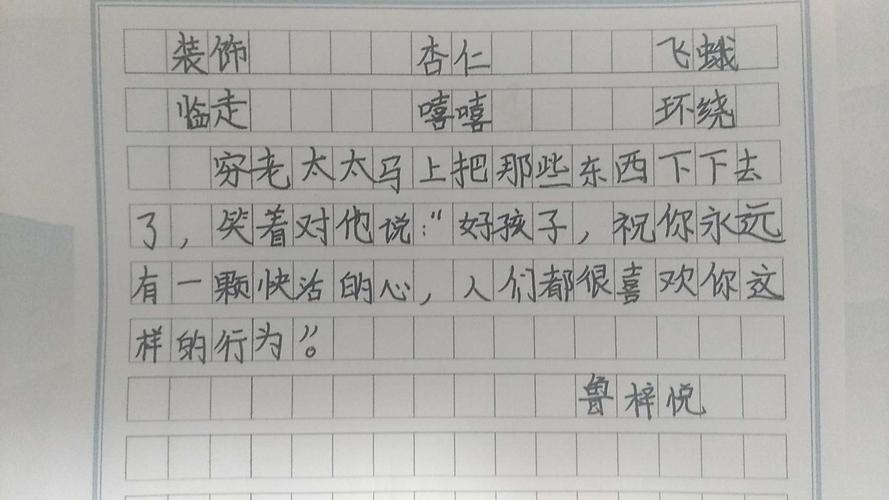 装饰 杏仁 飞蛾
临走 嘻嘻 环绕
穷老太太马上把那些东西下下去
了，笑着对他说：“好孩子，祝你永远
有一颗快活的心，人们都很喜欢你这
样的行为”。
鲁梓悦